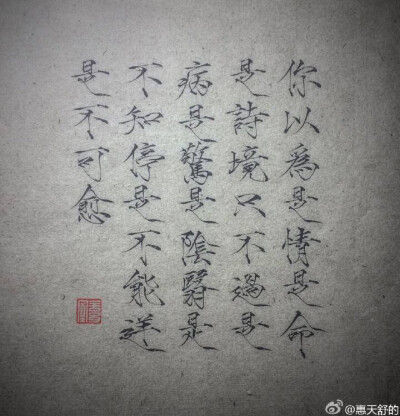 你以為是情是命
是詩境只不過是
病是驚是陰翳是
不知停是不能送
是不可愈
@惠天舒的